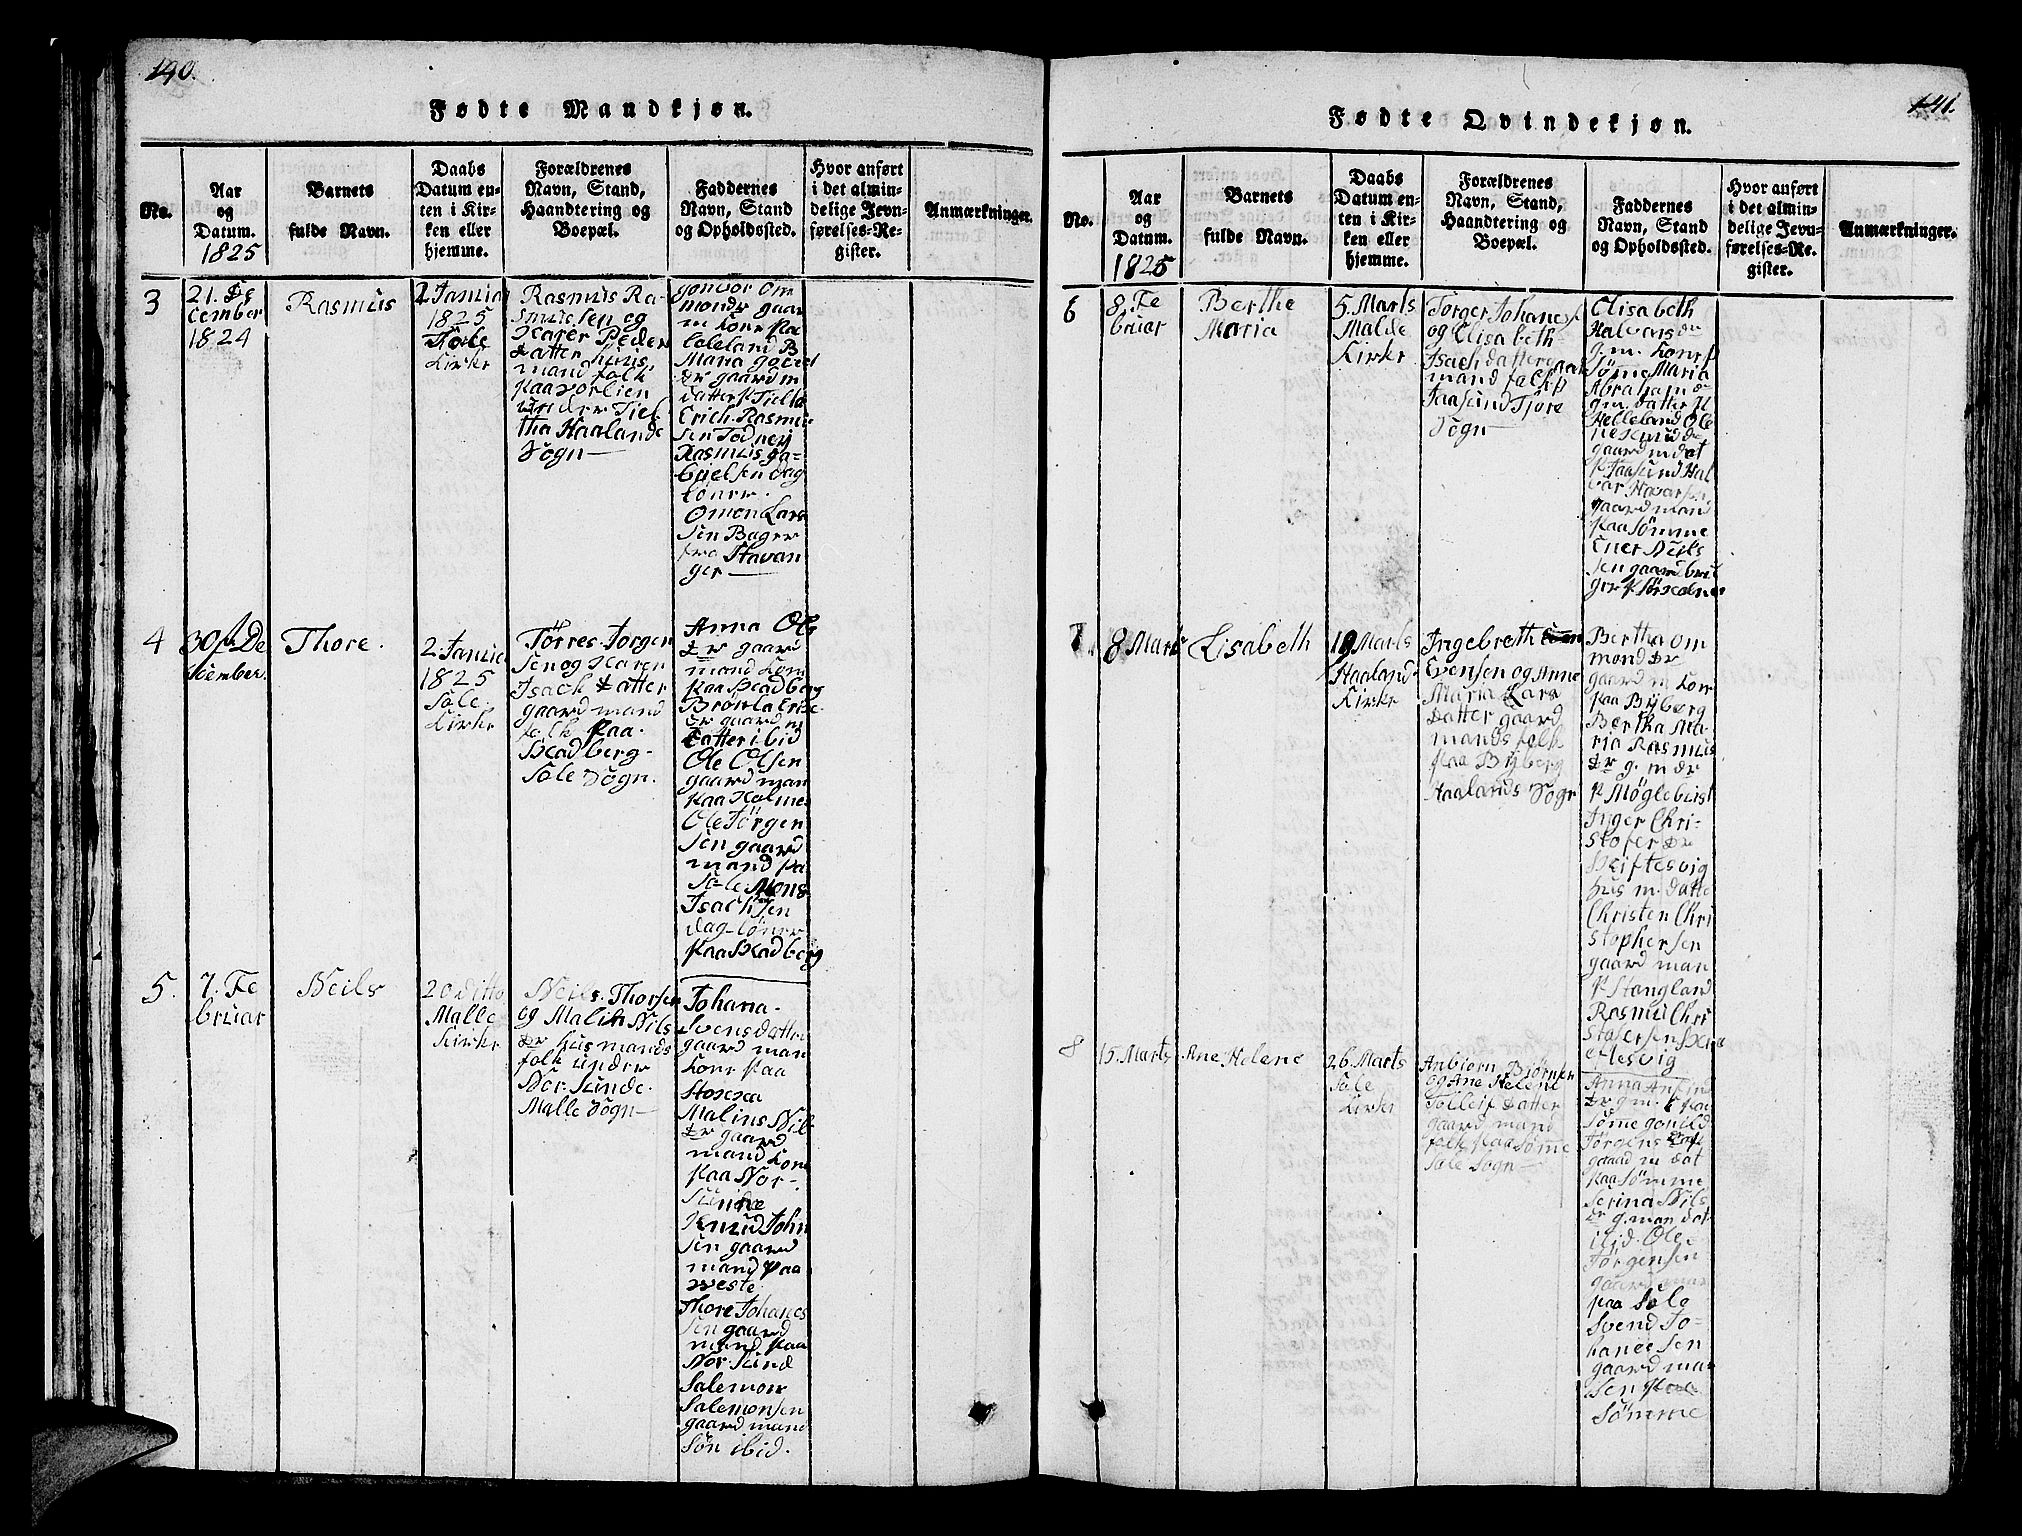 190.
Fødte Mandkjøn.
No.
Aar
og
Datum.
1825
Barnets
fulde Navn.
Daabs
Datum en-
ten i Kir-
ken eller
hjemme.
Forældrenes
Navn, Stand,
Haandtering og
Boepæl.
Faddernes
Navn, Stand
og Opholdssted.
Hvor anført
i det almin-
delige Jevn-
førelses-Re-
gister.
Anmærkninger.
3
21. De
cember
1824
Rasmus
2 Januar
1825
Sole
Kirke
Rasmus Ra-
smusen og
Karen Peder
datter huus
mand folk
paa
under Tiel
tha Haalands
Sogn
Gonvor Om
monds gaar
m kone paa
B
Maria
dr gaard m
datter p Tielta
Erich Rasmu
sen Todney
Rasmus ga-
brielsen dag
lønner.
Omon Lars
sen Bager
fra Stavan
ger
4
30 De
cember.
Thore.
2 Januar
1825
Sole
Kirke
Tørres Jorgen
sen og Karen
Isach datter
gaard mand
folk paa
Skadberg
Sole Sogn.
Anna Ols
dr gaard
mand kone
paa Skadberg
dr gaard m
datter ibid
Ole Olsen
gaard man
paa Kolme
Ole Jørgen
sen gaard
mand pa
Sole Mons
Isachsen
dag lønner
paa Skadberg
5.
7. Fe
bruar
Neils
20 ditto
Malle
Kirke
Neils Thorsen
og Malin Nils
dr husmands
folk under
Nor Sunde
Malle Sogn
Johana
Svens datter
gaard man
kone paa
Stokka
Malins Nils
dr gaard
mand kone
paa Nor-
Sunde
Knud John
sen gaard
mand paa
weste
Thore Johanes
sen gaard
mand paa
Nor Sund
Salemon
Salemonsen
gaard mand
søn ibid.
141.
Fødte Qvindekjøn.
No.
Aar
og
Datum.
1825
Barnets
fulde Navn.
Daabs
Datum en-
ten i Kir-
ken eller
hjemme.
Forældrenes
Navn, Stand,
Haandtering og
Boepæl.
Faddernes
Navn, Stand
og Opholdssted.
Hvor anført
i det almin-
delige Jevn-
førelses-Re-
gister.
Anmærkninger.
6
8. Fe
bruar
Berthe
Maria
5. Marts
Malde
Kirke
Torger Johanes
og Elisabeth
Isach datter gaar
mand folk p
Jaasund Tjore
Sogn
Elisabeth
Halvars dr
g. m. kone p
Sømme Maria
Abraham dr
g m. datter p
Helleland Ole
ne Knud dr
gaard m dat
p Jaasund Hal
var Havarsen
gaard man
paa Sømme
Ener Neils
sen gaard bru
ger p
7
8 Marts
Lisabeth
19 Marts
Haaland
Kirke
Ingebreth
Evensen og Anne
Maria Lars
datter gaard
mands folk
paa Byberg
Haalands Sogn
Bertha om
mond dr
gaard m kone
paa Byberg
Bertha Ma-
ria Rasmus
dr g. m dr
p Møglebust
Inger Chri-
stofer dr
Skiftesvig
hus m. datte
Christen Chri
stophersen
gaard man
p Stangland
Rasmu Chri
stofersen
8
15. Marts
Ane Helene
26. Marts
Sole
Kirke
Anbiørn Bjørnsen
og Ane Helene
Tolleif datter
gaard mand
folk paa Sømme
Sole Sogn
Anna Anfind
dr g m. k paa
Sømme gonild
Jørgens dat
gaard m dat
paa Sømme
Serina Nils
dr g. man dat
ibid. Ole
Jørgensen
gaard man
paa Sole
Svend Jo-
hanessen
gaard man
sen paa
Sømme